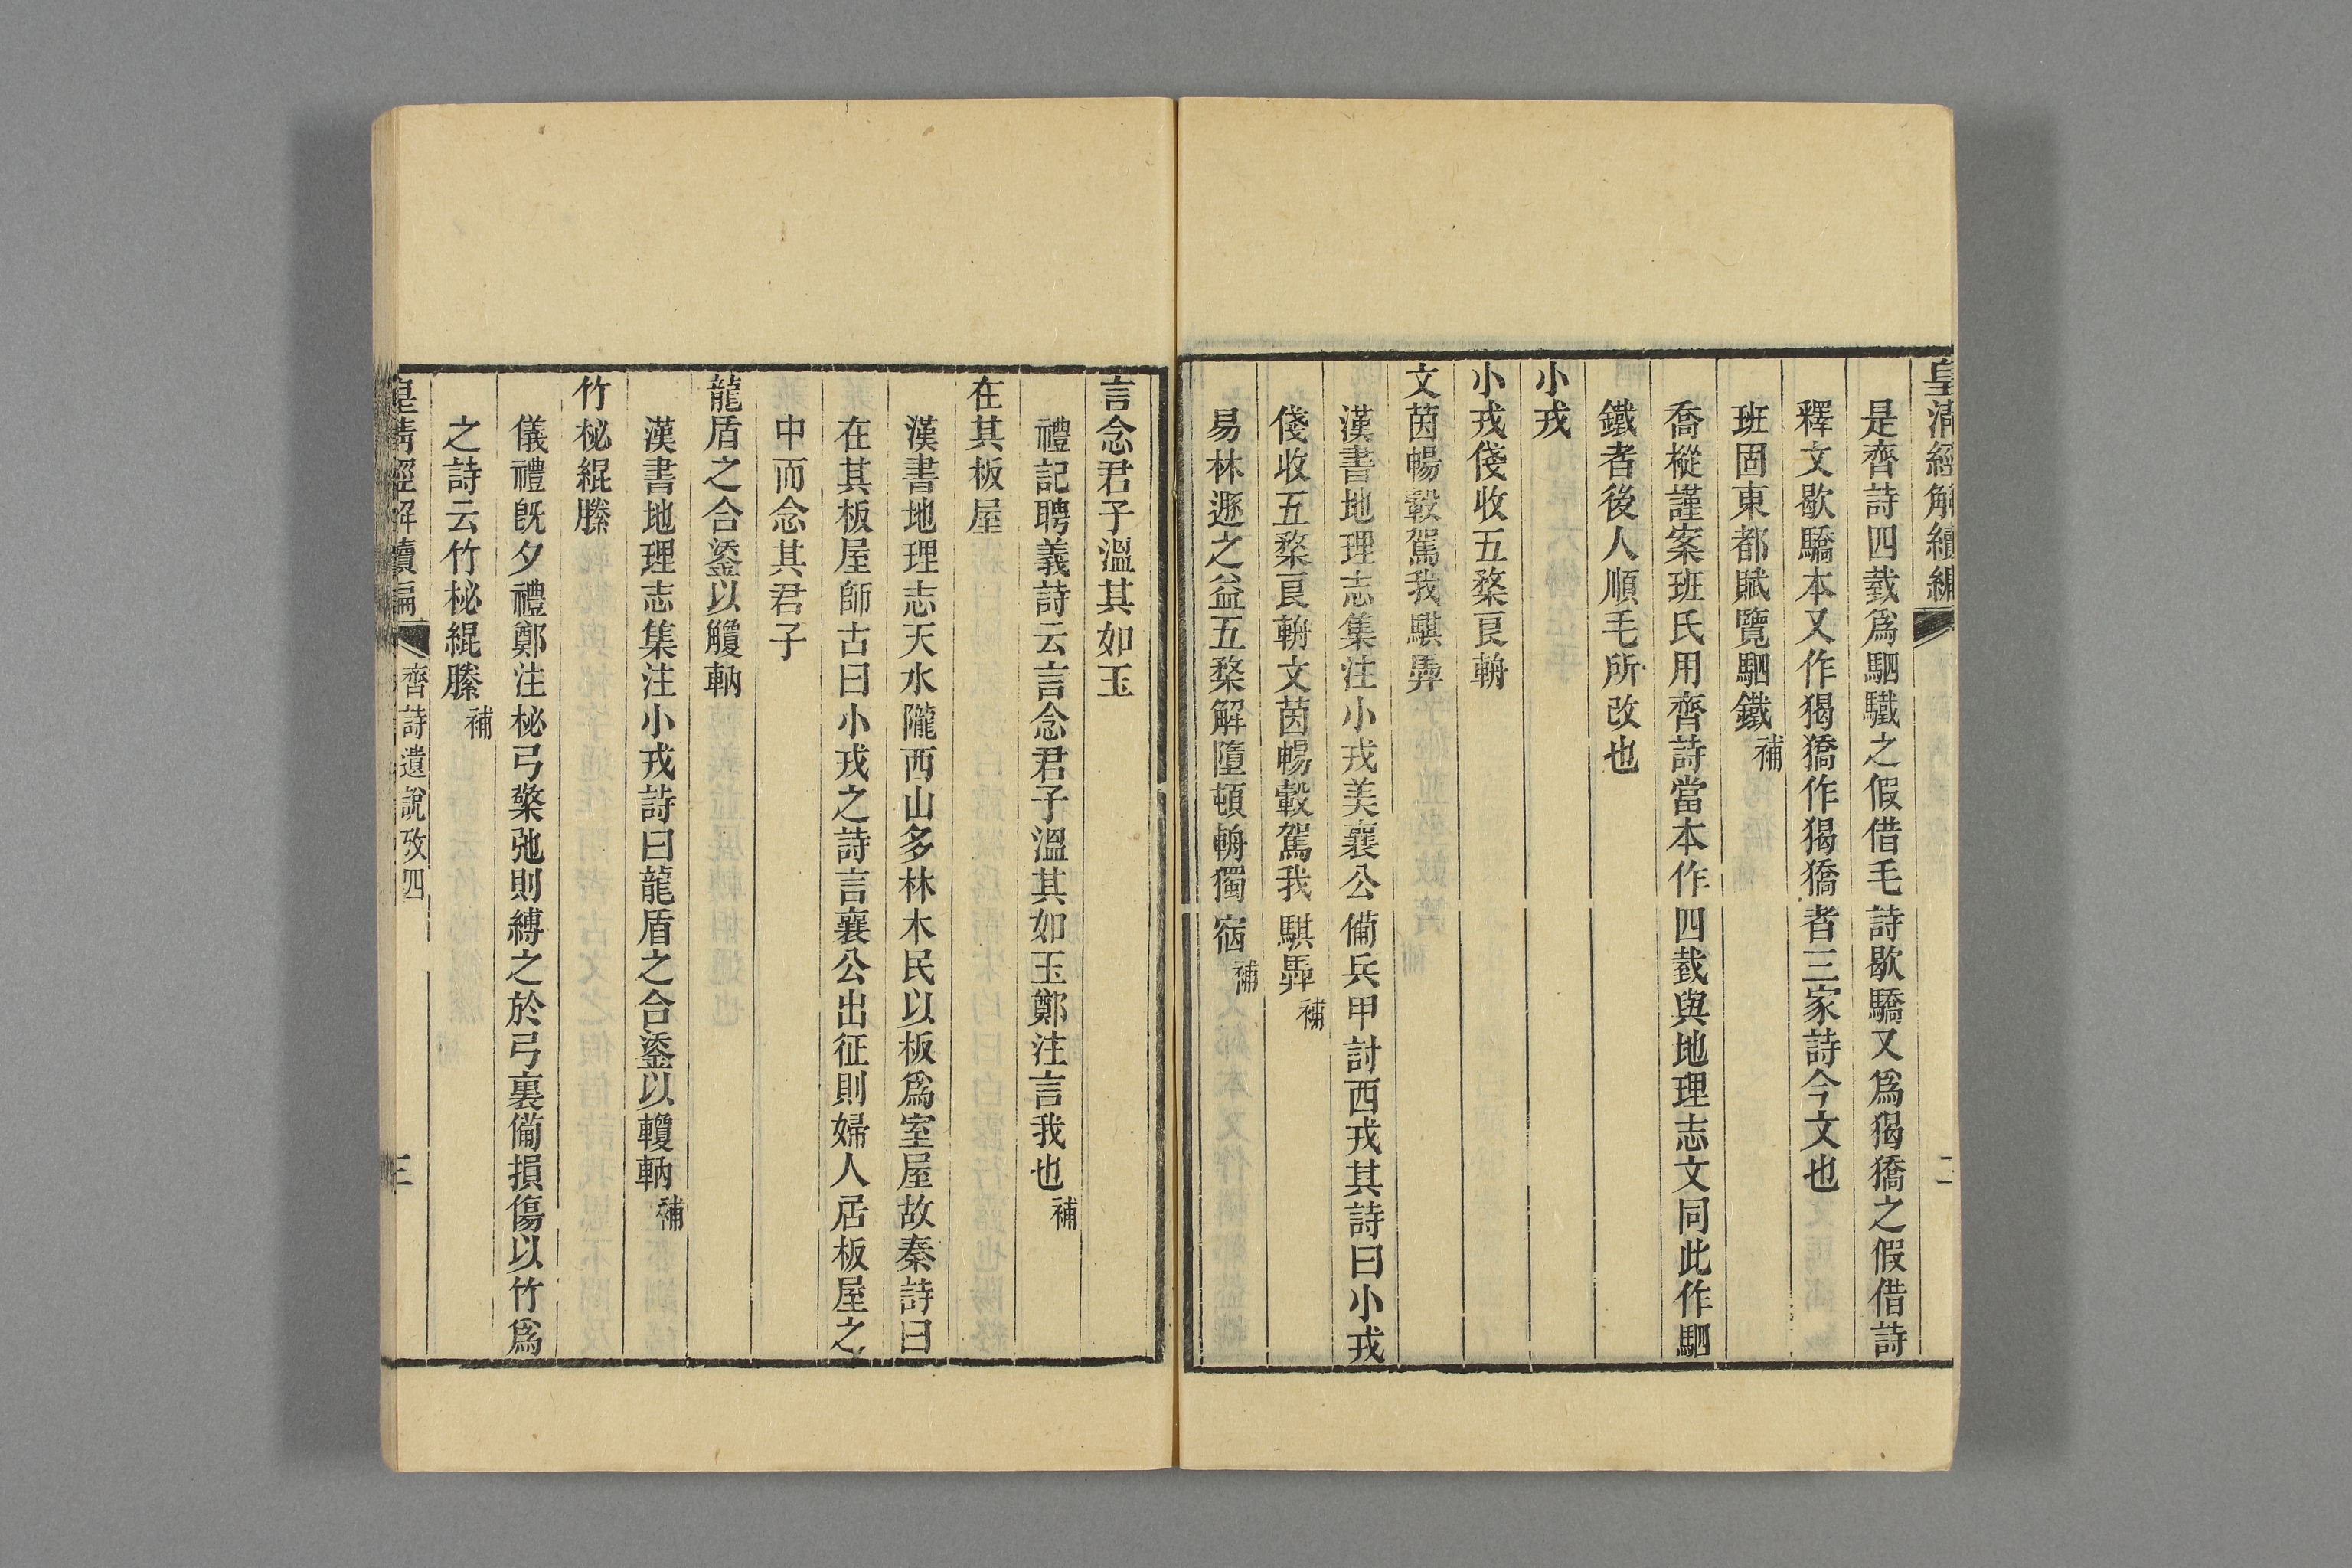 皇清經解續編
二
是齊詩四驖爲駟驖之假借毛詩歇驕又爲猲獢之假借詩
釋文歇驕本又作猲獢作猲獢者三家詩今文也
班固東都賦覽駟鐵補
喬樅謹案班氏用齊詩當本作四驖與地理志文同此作駟
鐵者後人順毛所改也
小戎
小戎俴收五楘良輈
文茵暢轂駕我騏馵
漢書地理志集注小戎美襄公備兵甲討西戎其詩曰小戎
俴收五楘良輈文茵暢轂駕我騏馵補
易林遯之益五楘解墮頓輈獨宿補
言念君子溫其如玉
禮記聘義詩云言念君子溫其如玉鄭注言我也補
在其板屋
漢書地理志天水隴西山多林木民以板爲室屋故秦詩曰
在其板屋師古曰小戎之詩言襄公出征則婦人居板屋之
中而念其君子
龍盾之合鋈以觼軜
漢書地理志集注小戎詩曰龍盾之合鋈以䡺軜補
竹柲緄縢
儀禮旣夕禮鄭注柲弓檠弛則縛之於弓裏備損傷以竹爲
之詩云竹柲緄縢補
皇清經解續編
齊詩遺說攷四
三